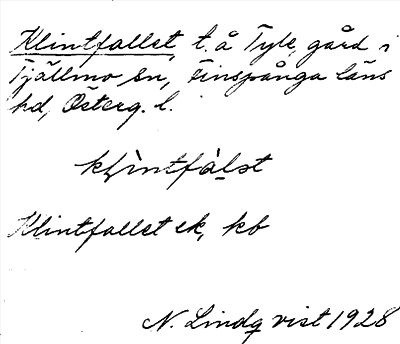 Klintfallet, t. å Tyle, gård i
Tjällmo sn, Finspånga läns
hd, Österg. l.
Klintfallet ek, kb
N. Lindqvist 1928